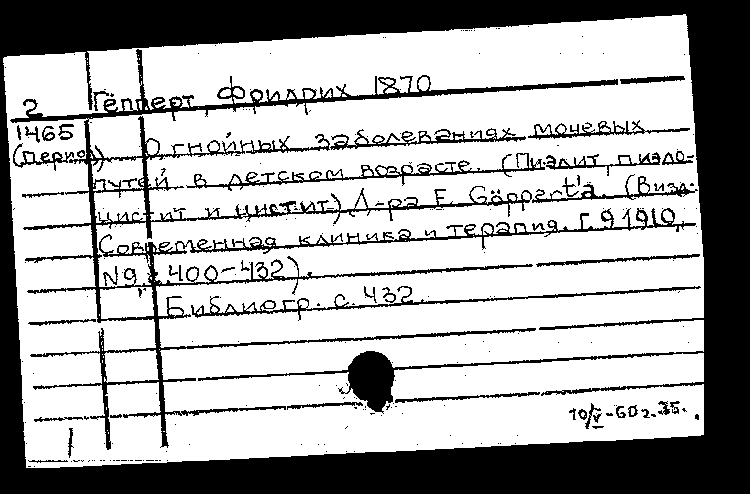 2 Гёпперт, Фридрих 1870
1465
(период) О гнойных заболеваниях мочевых
путей в детском возрасте. (Пиэлит, пиэло-
цистит и цистит) Д-ра F. Göppert'a. (В изд:
Современная клиника и терапия. Г. 9 1910,
N9, с. 400-432).
Библиогр. с. 432.
10/V-60г.